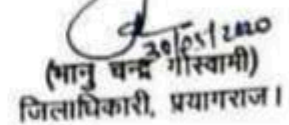 30/05/2020
(भानु चन्द्र गोस्वामी)
जिलाधिकारी, प्रयागराज।